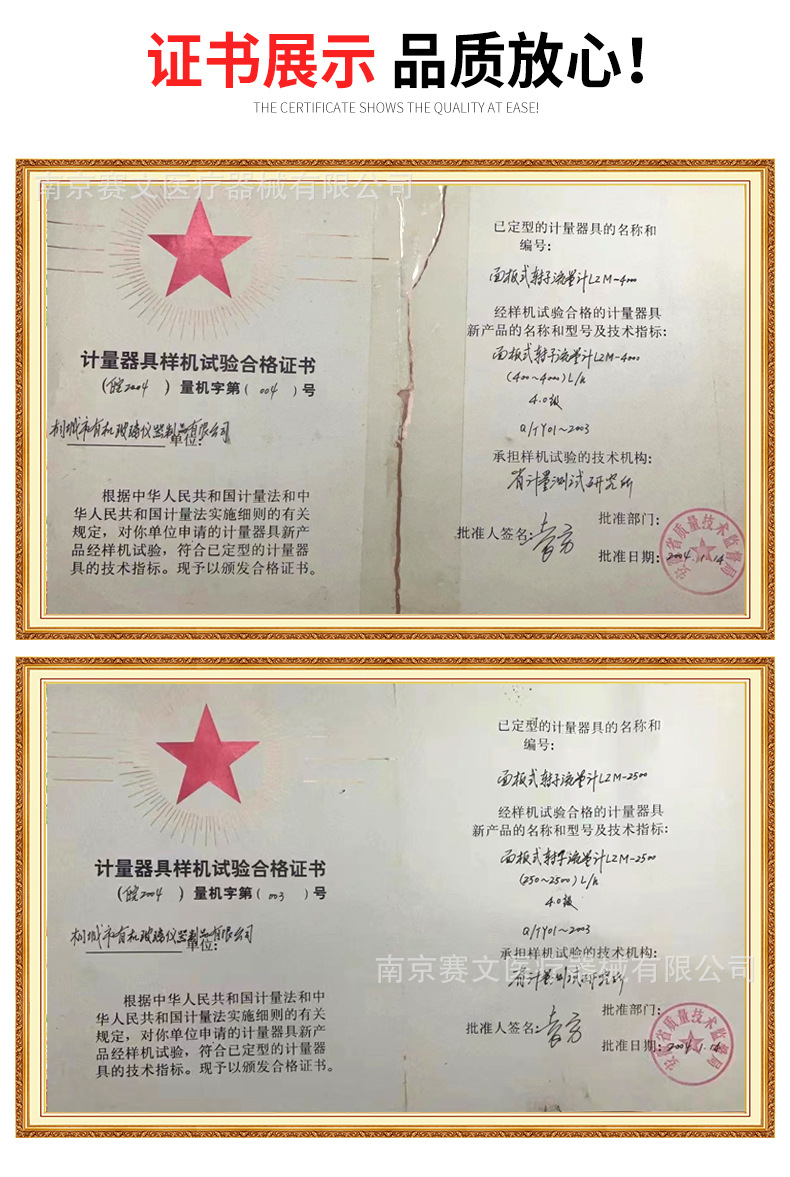 证书展示 品质放心！
THE CERTIFICATE SHOWS THE QUALITY AT EASE!
南京赛文医疗器械有限公司
计量器具样机试验合格证书
(皖2004 ) 量机字第( 004 ) 号
桐城市有机玻璃仪器制品有限公司
单位:
根据中华人民共和国计量法和中
华人民共和国计量法实施细则的有关
规定，对你单位申请的计量器具新产
品经样机试验，符合已定型的计量器
具的技术指标。现予以颁发合格证书。
已定型的计量器具的名称和
编号:
面板式转子流量计LZM-4000
经样机试验合格的计量器具
新产品的名称和型号及技术指标:
面板式转子流量计LZM-4000
(400~4000)L/h
4.0级
Q/TY01~2003
承担样机试验的技术机构:
省计量测试研究所
批准部门:
批准人签名:
批准日期: 2004.1.14
安徽省质量技术监督局
计量器具样机试验合格证书
(皖2004 ) 量机字第( 003 ) 号
桐城市有机玻璃仪器制品有限公司
单位:
根据中华人民共和国计量法和中
华人民共和国计量法实施细则的有关
规定，对你单位申请的计量器具新产
品经样机试验，符合已定型的计量器
具的技术指标。现予以颁发合格证书。
已定型的计量器具的名称和
编号:
面板式转子流量计LZM-2500
经样机试验合格的计量器具
新产品的名称和型号及技术指标:
面板式转子流量计LZM-2500
(250~2500)L/h
4.0级
Q/TY01~2003
承担样机试验的技术机构:
南京赛文医疗器械有限公司
省计量测试研究所
批准部门:
批准人签名:
批准日期: 2004.1.14
安徽省质量技术监督局